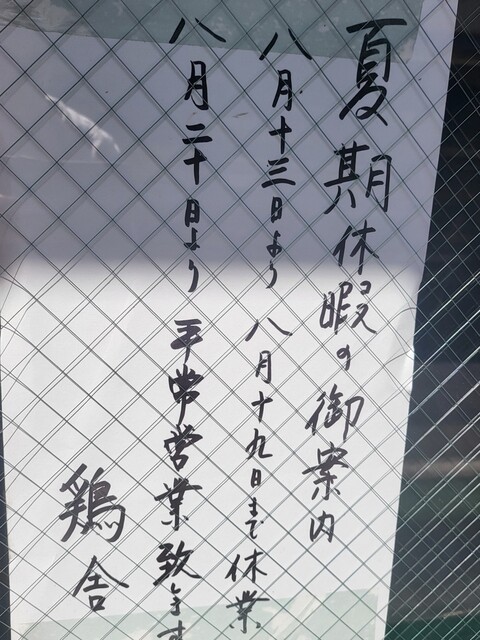 夏期休暇の御案内
八月十三日より八月十九日まで休業
八月二十日より平常営業致します
鶏舎